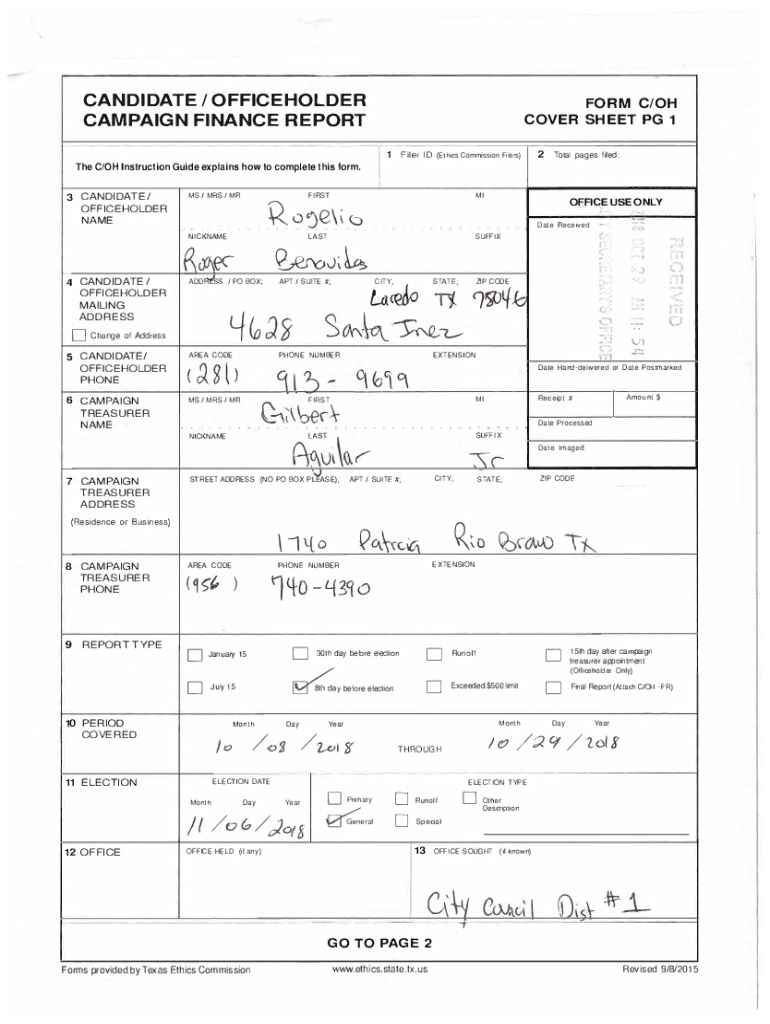 CANDIDATE / OFFICEHOLDER
CAMPAIGN FINANCE REPORT
FORM C/OH
COVER SHEET PG 1
The C/OH Instruction Guide explains how to complete this form.
1 Filer ID (Ethics Commission Filers)
2 Total pages filed:
3 CANDIDATE / OFFICEHOLDER NAME
MS / MRS / MR FIRST MI
Rogelio
NICKNAME LAST SUFFIX
Roger Benavides
OFFICE USE ONLY
Date Received
RECEIVED
2018 OCT 29 AM 11: 54
CITY SECRETARY'S OFFICE
4 CANDIDATE / OFFICEHOLDER MAILING ADDRESS
Change of Address
ADDRESS / PO BOX; APT / SUITE #; CITY; STATE; ZIP CODE
Laredo TX 78046
4628 Santa Inez
5 CANDIDATE / OFFICEHOLDER PHONE
AREA CODE PHONE NUMBER EXTENSION
(281) 913-9699
Date Hand-delivered or Date Postmarked
6 CAMPAIGN TREASURER NAME
MS / MRS / MR FIRST MI
Gilbert
NICKNAME LAST SUFFIX
Aguilar Jr
Receipt # Amount $
Date Processed
Date Imaged
7 CAMPAIGN TREASURER ADDRESS
(Residence or Business)
STREET ADDRESS (NO PO BOX PLEASE); APT / SUITE #; CITY; STATE; ZIP CODE
1740 Patrcia Rio Bravo TX
8 CAMPAIGN TREASURER PHONE
AREA CODE PHONE NUMBER EXTENSION
(956) 740-4390
9 REPORT TYPE
January 15 30th day before election Runoff 15th day after campaign treasurer appointment (Officeholder Only)
July 15 8th day before election Exceeded $500 limit Final Report (Attach C/OH - FR)
10 PERIOD COVERED
Month Day Year Month Day Year
10 / 08 / 2018 THROUGH 10 / 29 / 2018
11 ELECTION
ELECTION DATE
Month Day Year
11 / 06 / 2018
ELECTION TYPE
Primary Runoff Other Description
General Special
12 OFFICE
OFFICE HELD (if any)
13 OFFICE SOUGHT (if known)
City Council Dist #1
GO TO PAGE 2
Forms provided by Texas Ethics Commission www.ethics.state.tx.us Revised 9/8/2015